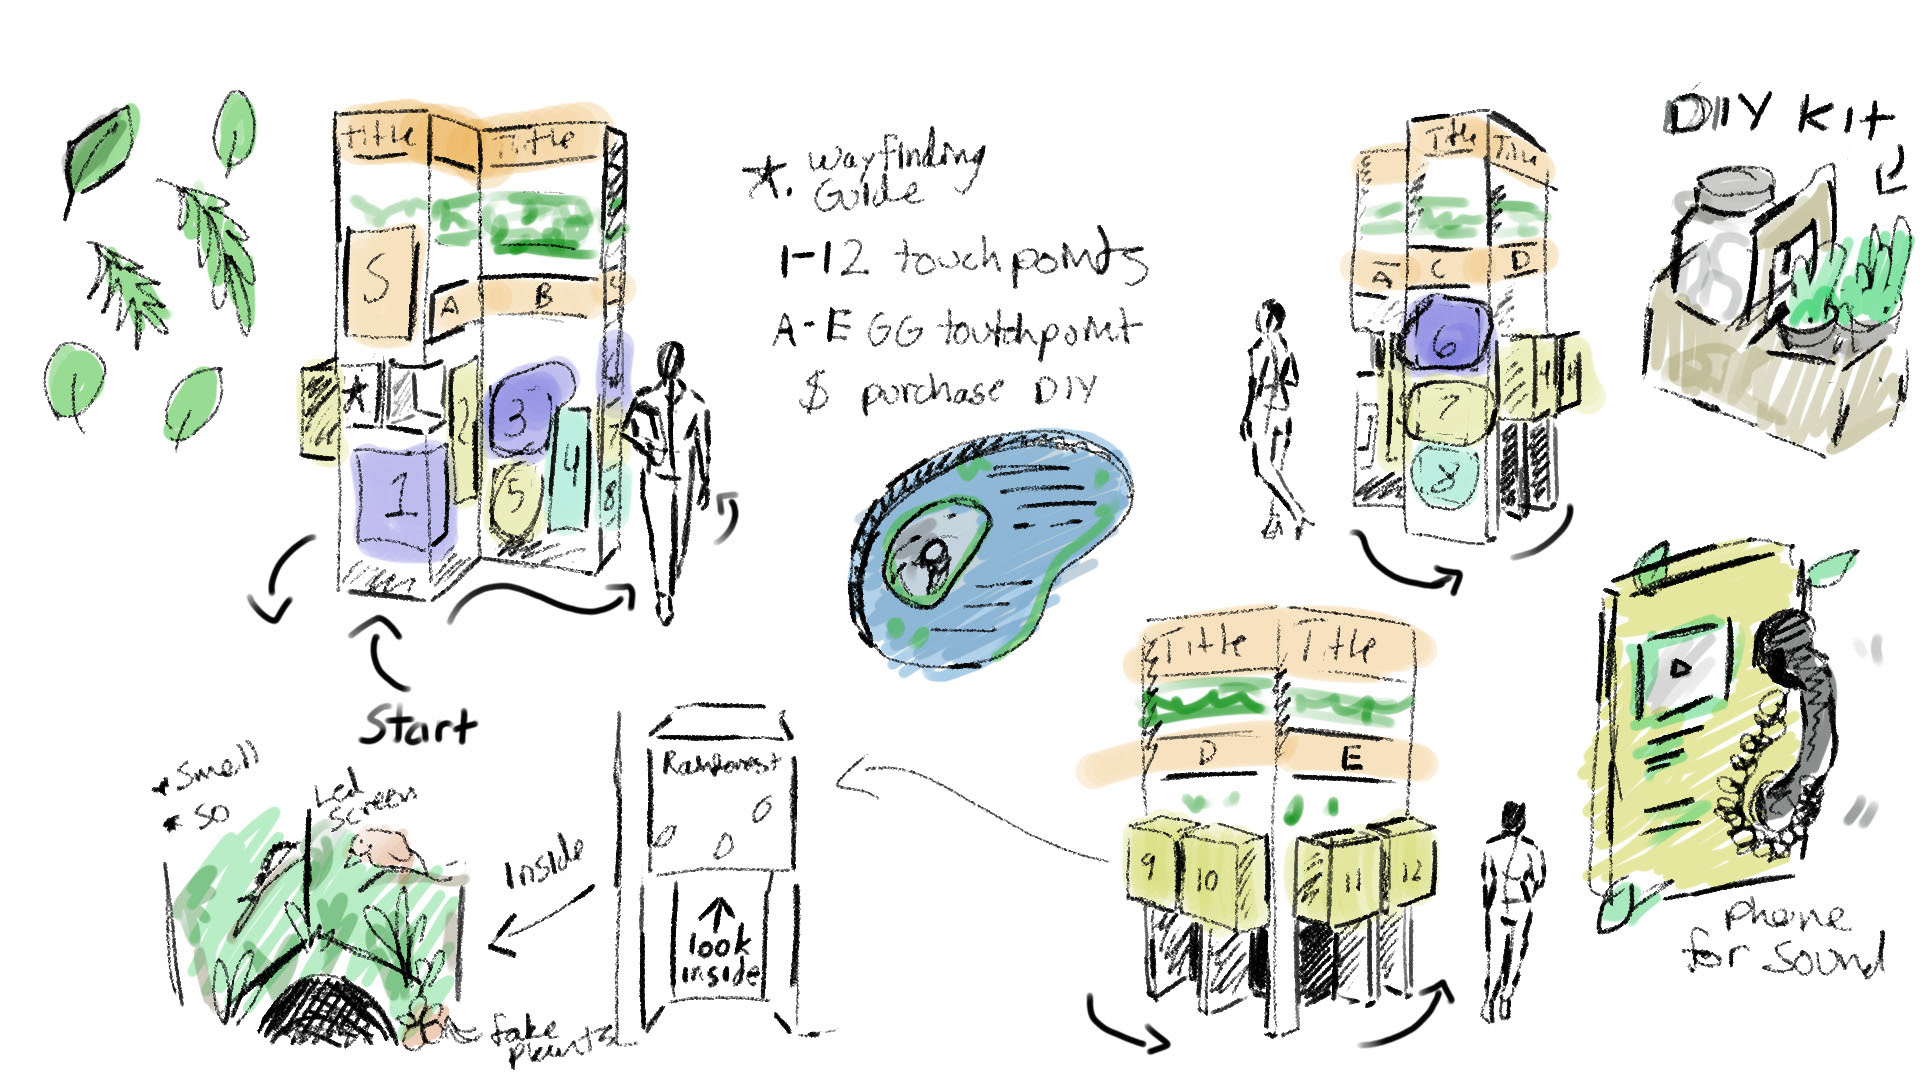 Title
Title
S
A
B
S
★
2
3
4
5
1
8
Start
★. wayfinding
Guide
1-12 touchpoints
A-E GG toutchpoint
$ purchase DIY
Title
Title
A
C
D
6
7
8
DIY Kit
Title
Title
D
E
9
10
11
12
phone
for Sound
Rainforest
look
inside
Inside
* Smell
* SO
Led
Screen
fake
plants